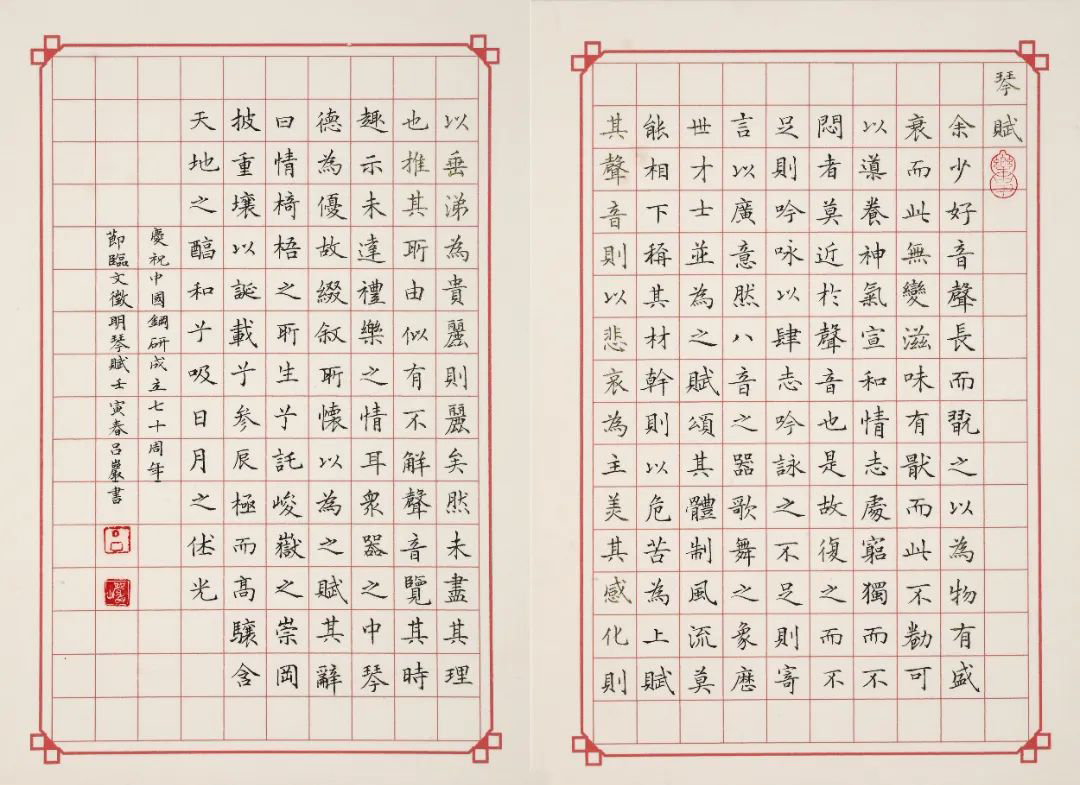 琴賦
余少好音聲長而翫之以為物有盛
衰而此無變滋味有猒而此不勌可
以導養神氣宣和情志處窮獨而不
悶者莫近於聲音也是故復之而不
足則吟咏以肆志吟詠之不足則寄
言以廣意然八音之器歌舞之象歷
世才士並為之賦頌其體制風流莫
能相下稱其材幹則以危苦為上賦
其聲音則以悲哀為主美其感化則
以垂涕為貴麗則麗矣然未盡其理
也推其所由似有不解聲音覽其時
趣示未達禮樂之情耳衆器之中琴
德為優故綴叙所懷以為之賦其辭
曰情椅梧之所生兮託峻嶽之崇岡
披重壤以誕載兮参辰極而高驤含
天地之醕和兮吸日月之休光
慶祝中國鋼研成立七十周年
節臨文徵明琴賦壬寅春呂巖書